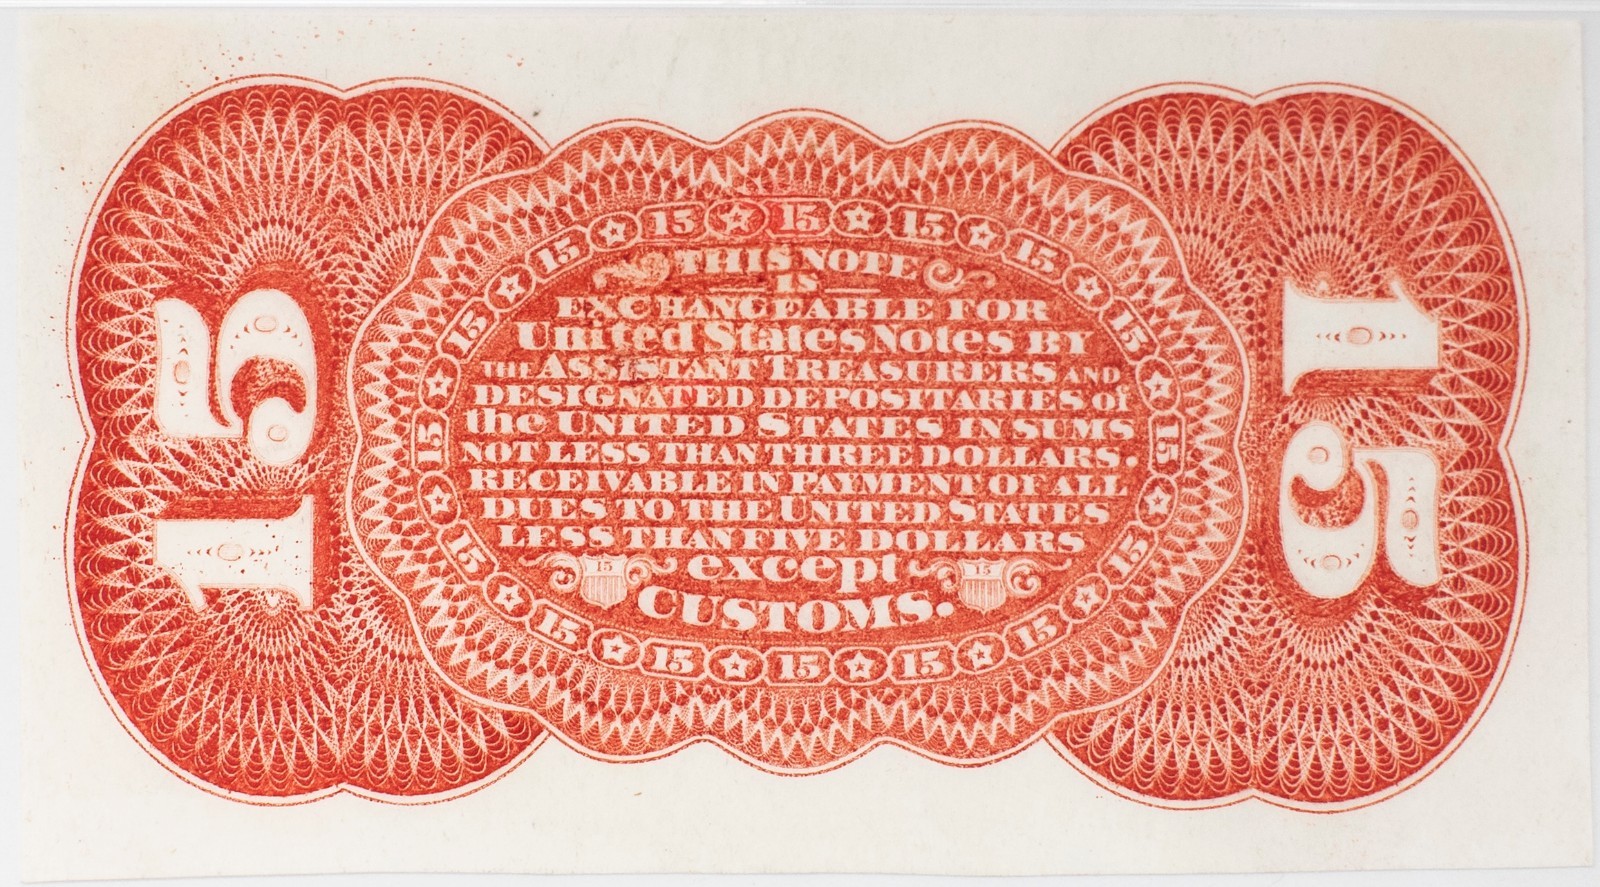 15
15
15 15 15 15 15 15 15 15 15 15 15 15 15 15 15 15 15 15
THIS NOTE
IS
EXCHANGEABLE FOR
United States Notes BY
THE ASSISTANT TREASURERS AND
DESIGNATED DEPOSITARIES of
the UNITED STATES IN SUMS
NOT LESS THAN THREE DOLLARS.
RECEIVABLE IN PAYMENT OF ALL
DUES TO THE UNITED STATES
LESS THAN FIVE DOLLARS
15 except 15
CUSTOMS.